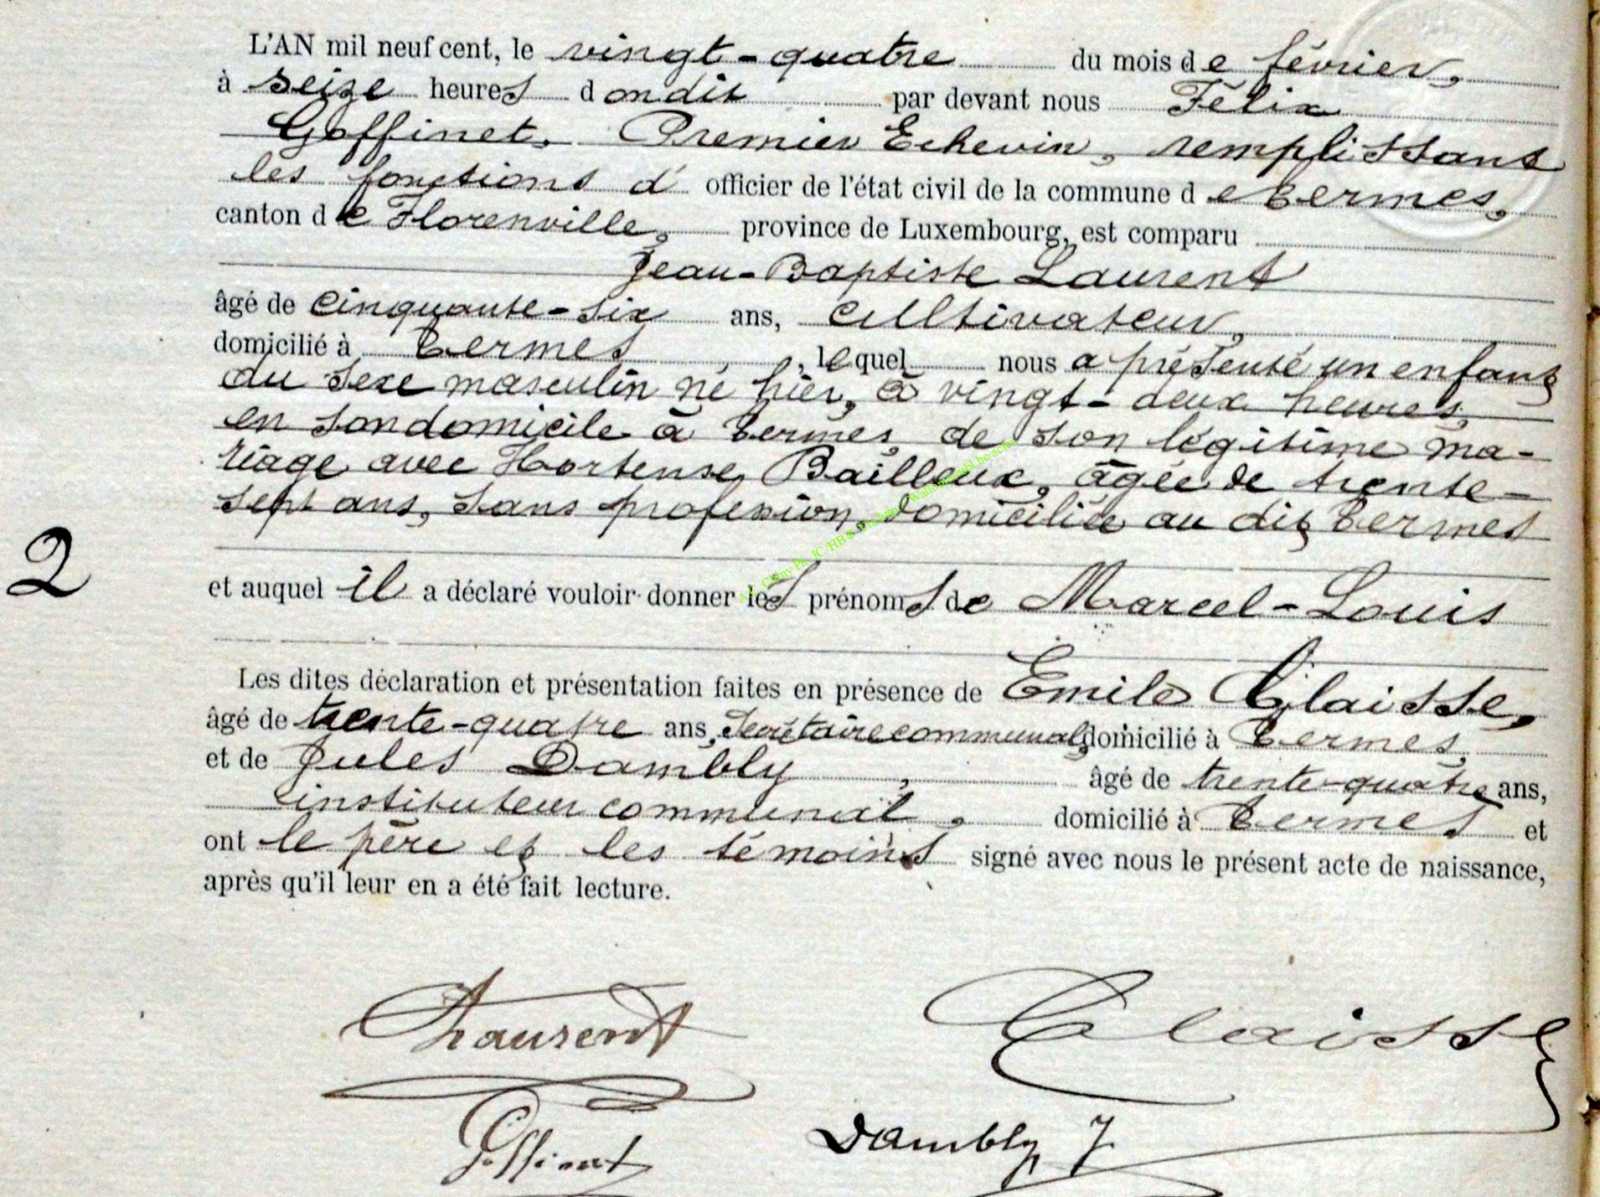 L'AN mil neuf cent, le vingt-quatre du mois de février,
à seize heures dondit par devant nous Félix
Goffinet, Premier Echevin, remplissant
les fonctions d' officier de l'état civil de la commune de Termes,
canton de Florenville, province de Luxembourg, est comparu
Jean-Baptiste Laurent
âgé de cinquante-six ans, cultivateur,
domicilié à Termes, lequel nous a présenté un enfant
du sexe masculin né hier, à vingt-deux heures,
en son domicile à Termes, de son légitime ma-
riage avec Hortense Bailleux, âgée de trente-
sept ans, sans profession, domiciliée au dit Termes
2
et auquel il a déclaré vouloir donner les prénoms de Marcel-Louis
Les dites déclaration et présentation faites en présence de Emile Claisse,
âgé de trente-quatre ans, secrétaire communal, domicilié à Termes,
et de Jules Dambly, âgé de trente-quatre ans,
instituteur communal, domicilié à Termes et
ont le père et les témoins signé avec nous le présent acte de naissance,
après qu'il leur en a été fait lecture.
Laurent Claisse
Goffinet Dambly J